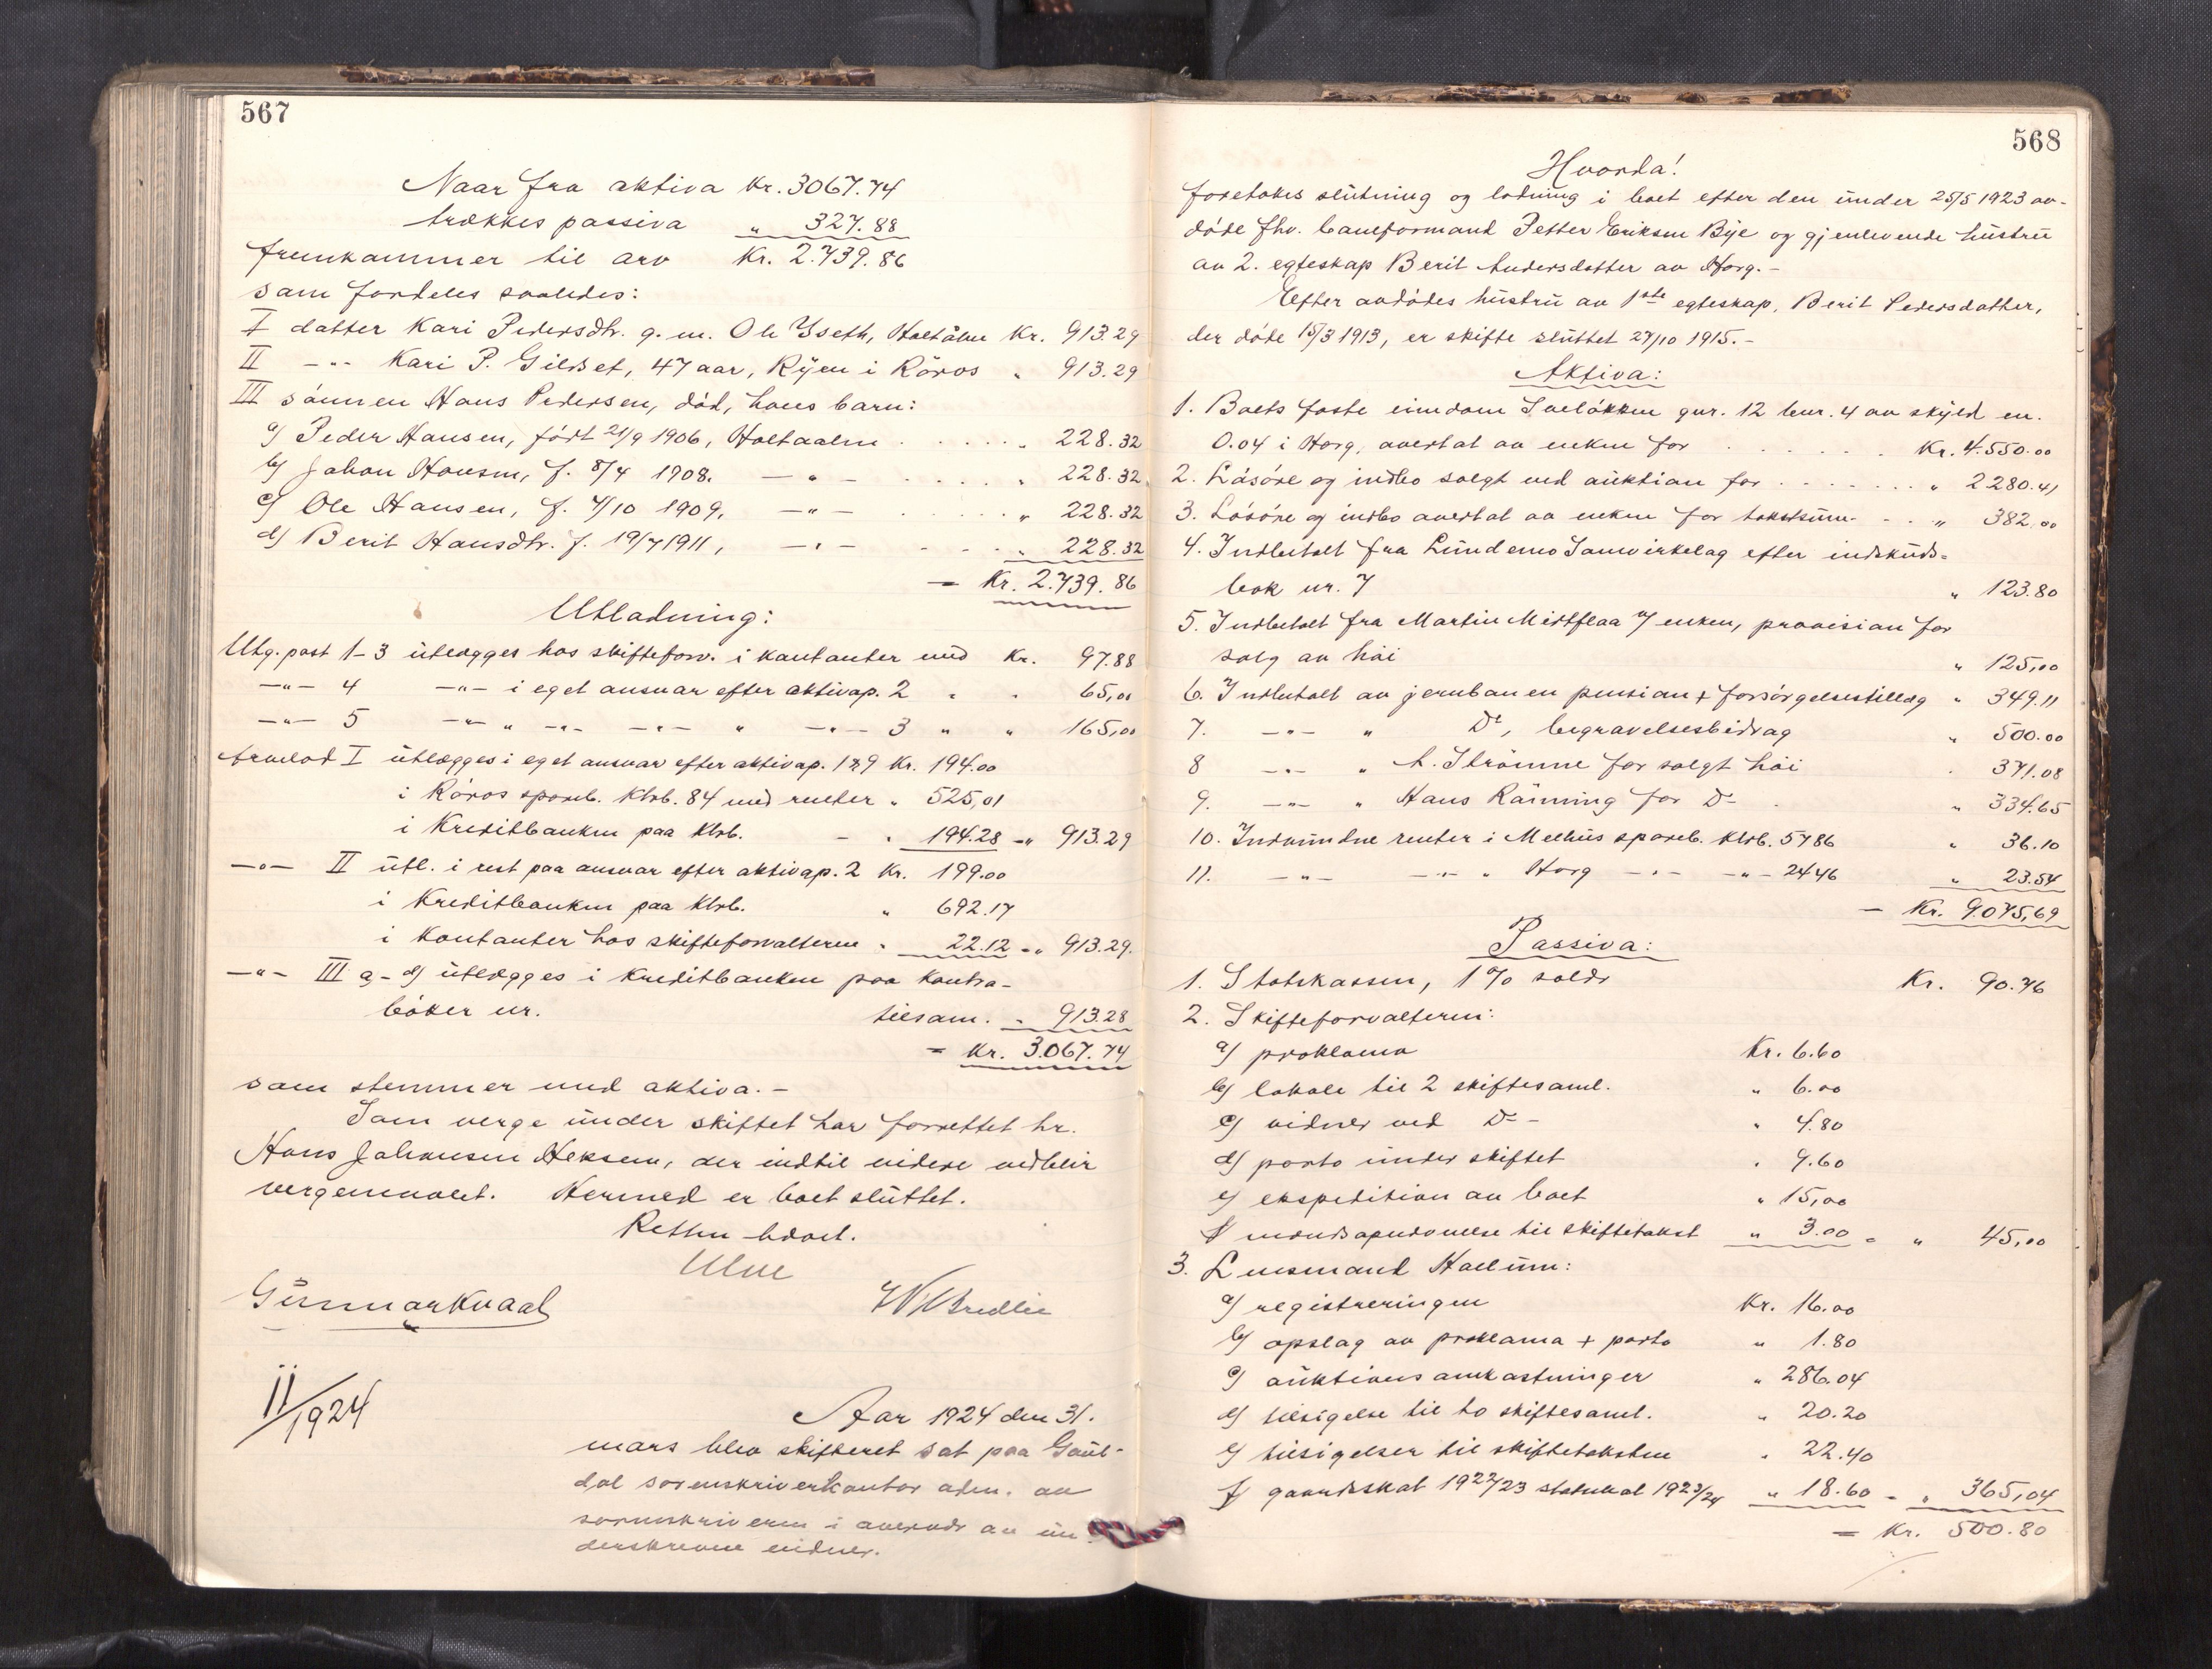 567
Naar fra aktiva Kr. 3067.74
trækkes passiva " 327.88
fremkommer til arv Kr. 2.739.86
som fordeles saaledes:
I datter Kari Pedersdtr. g. m. Ole Yseth, Holtålen Kr. 913.29
II -"- Kari P. Gilset, 47 aar, Ryen i Röros " 913.29
III sönnen Hans Pedersen, död, hans barn:
a) Peder Hansen, födt 21/9 1906, Holtaalen . . . . . " 228.32
b) Johan Hansen, f. 8/4 1908. — " — . . . . . " 228.32
c) Ole Hansen, f. 4/10 1909, — " — . . . . . " 228.32
d) Berit Hansdtr. f. 19/7 1911, — " — . . . . " 228.32
= Kr. 2.739.86
Utlodning:
Utg. post 1-3 utlægges hos skifteforv. i kontanter med Kr. 97.88
-"- 4 -"- i eget ansvar efter aktivap. 2 " " 65,00
-"- 5 -"- " -"- -"- " -"- 3 " " 165,00
Arvelod I utlægges i eget ansvar efter aktivap. 1 & 9 Kr. 194.00
i Röros spareb. Ktrb. 84 med renter " 525,01
i Kreditbanken paa Ktrb. - " 194.28 = " 913.29
-"- II utl. i rest paa ansvar efter aktivap. 2 Kr. 199.00
i Kreditbanken paa Ktrb. " 692.17
i Kontanter hos skifteforvalteren " 22.12 = " 913.29.
-"- III a - d) utlægges i Kreditbanken paa Kontra-
böker nr. tilsam. " 913.28
= Kr. 3.067.74
som stemmer med aktiva. -
Som verge under skiftet har forrettet hr.
Hans Johansen Heksem, der indtil videre vedblir
vergemaalet. Hermed er boet sluttet.
Retten hævet.
Ulve
Gunnar Kvaal
11/1924
Aar 1924 den 31.
mars blev skifteret sat paa Gaul-
dal sorenskriverkontor adm. av
sorenskriveren i overvær av un-
derskrevne vidner.
568
Hvorda!
foretokes slutning og lodning i boet efter den under 25/5 1923 av-
döde fhv. baneformand Petter Eriksen Bye og gjenlevende hustru
av 2. egteskap Berit Andersdatter av Horg. -
Efter avdödes hustru av 1ste egteskap, Berit Pedersdatter,
der döde 15/3 1913, er skifte sluttet 27/10 1915. -
Aktiva:
1. Boets faste eiendom gnr. 12 bnr. 4 av skyld m.
0.04 i Horg, overtat av enken for . . . . . . Kr. 4.550.00
2. Lösöre og indbo solgt ved auktion for . . . . . . " 2280.41
3. Lösöre og indbo overtat av enken for takstsum . . . " 382.00
4. Indbetalt fra Lundemo Samvirkelag efter indskuds-
bok nr. 7 " 123.80
5. Indbetalt fra Martin Midtflaa v/ enken, provision for
salg av höi " 125,00
6. Indbetalt av jernbanen pension + forsörgelsestillæg " 349.11
7. -"- " Do, begravelsesbidrag " 500.00
8 -"- " A. Strömme for solgt höi " 371.08
9. -"- " Hans Rönning for Do . " 334.65
10. Indvundne renter i Melhus spareb. Ktrb. 5786 " 36.10
11. -"- -"- " Horg -"- -"- 2446 " 23.54
= Kr. 9.075,69
Passiva:
1. Statskassen, 1% Kr. 90.76
2. Skifteforvalteren:
a) proklama Kr. 6.60
b) lokale til 2 skiftesaml. " 6.00
c) vidner ved Do - " 4.80
d) porto under skiftet " 9.60
e) ekspedition av boet " 15,00
f) mandsopnævnelse til skiftetakst " 3.00 = " 45,00
3. Lensmand Hollum:
a) registreringen Kr. 16.00
b) opslag av proklama + porto " 1.80
c) auktionsomkostninger " 286.04
d) tilsigelse til to skiftesaml. " 20.20
e) tilsigelser til skiftetaksten " 22.40
f) gaardskat 1922/23 1923/24 " 18.60 = " 365,04
= Kr. 500.80